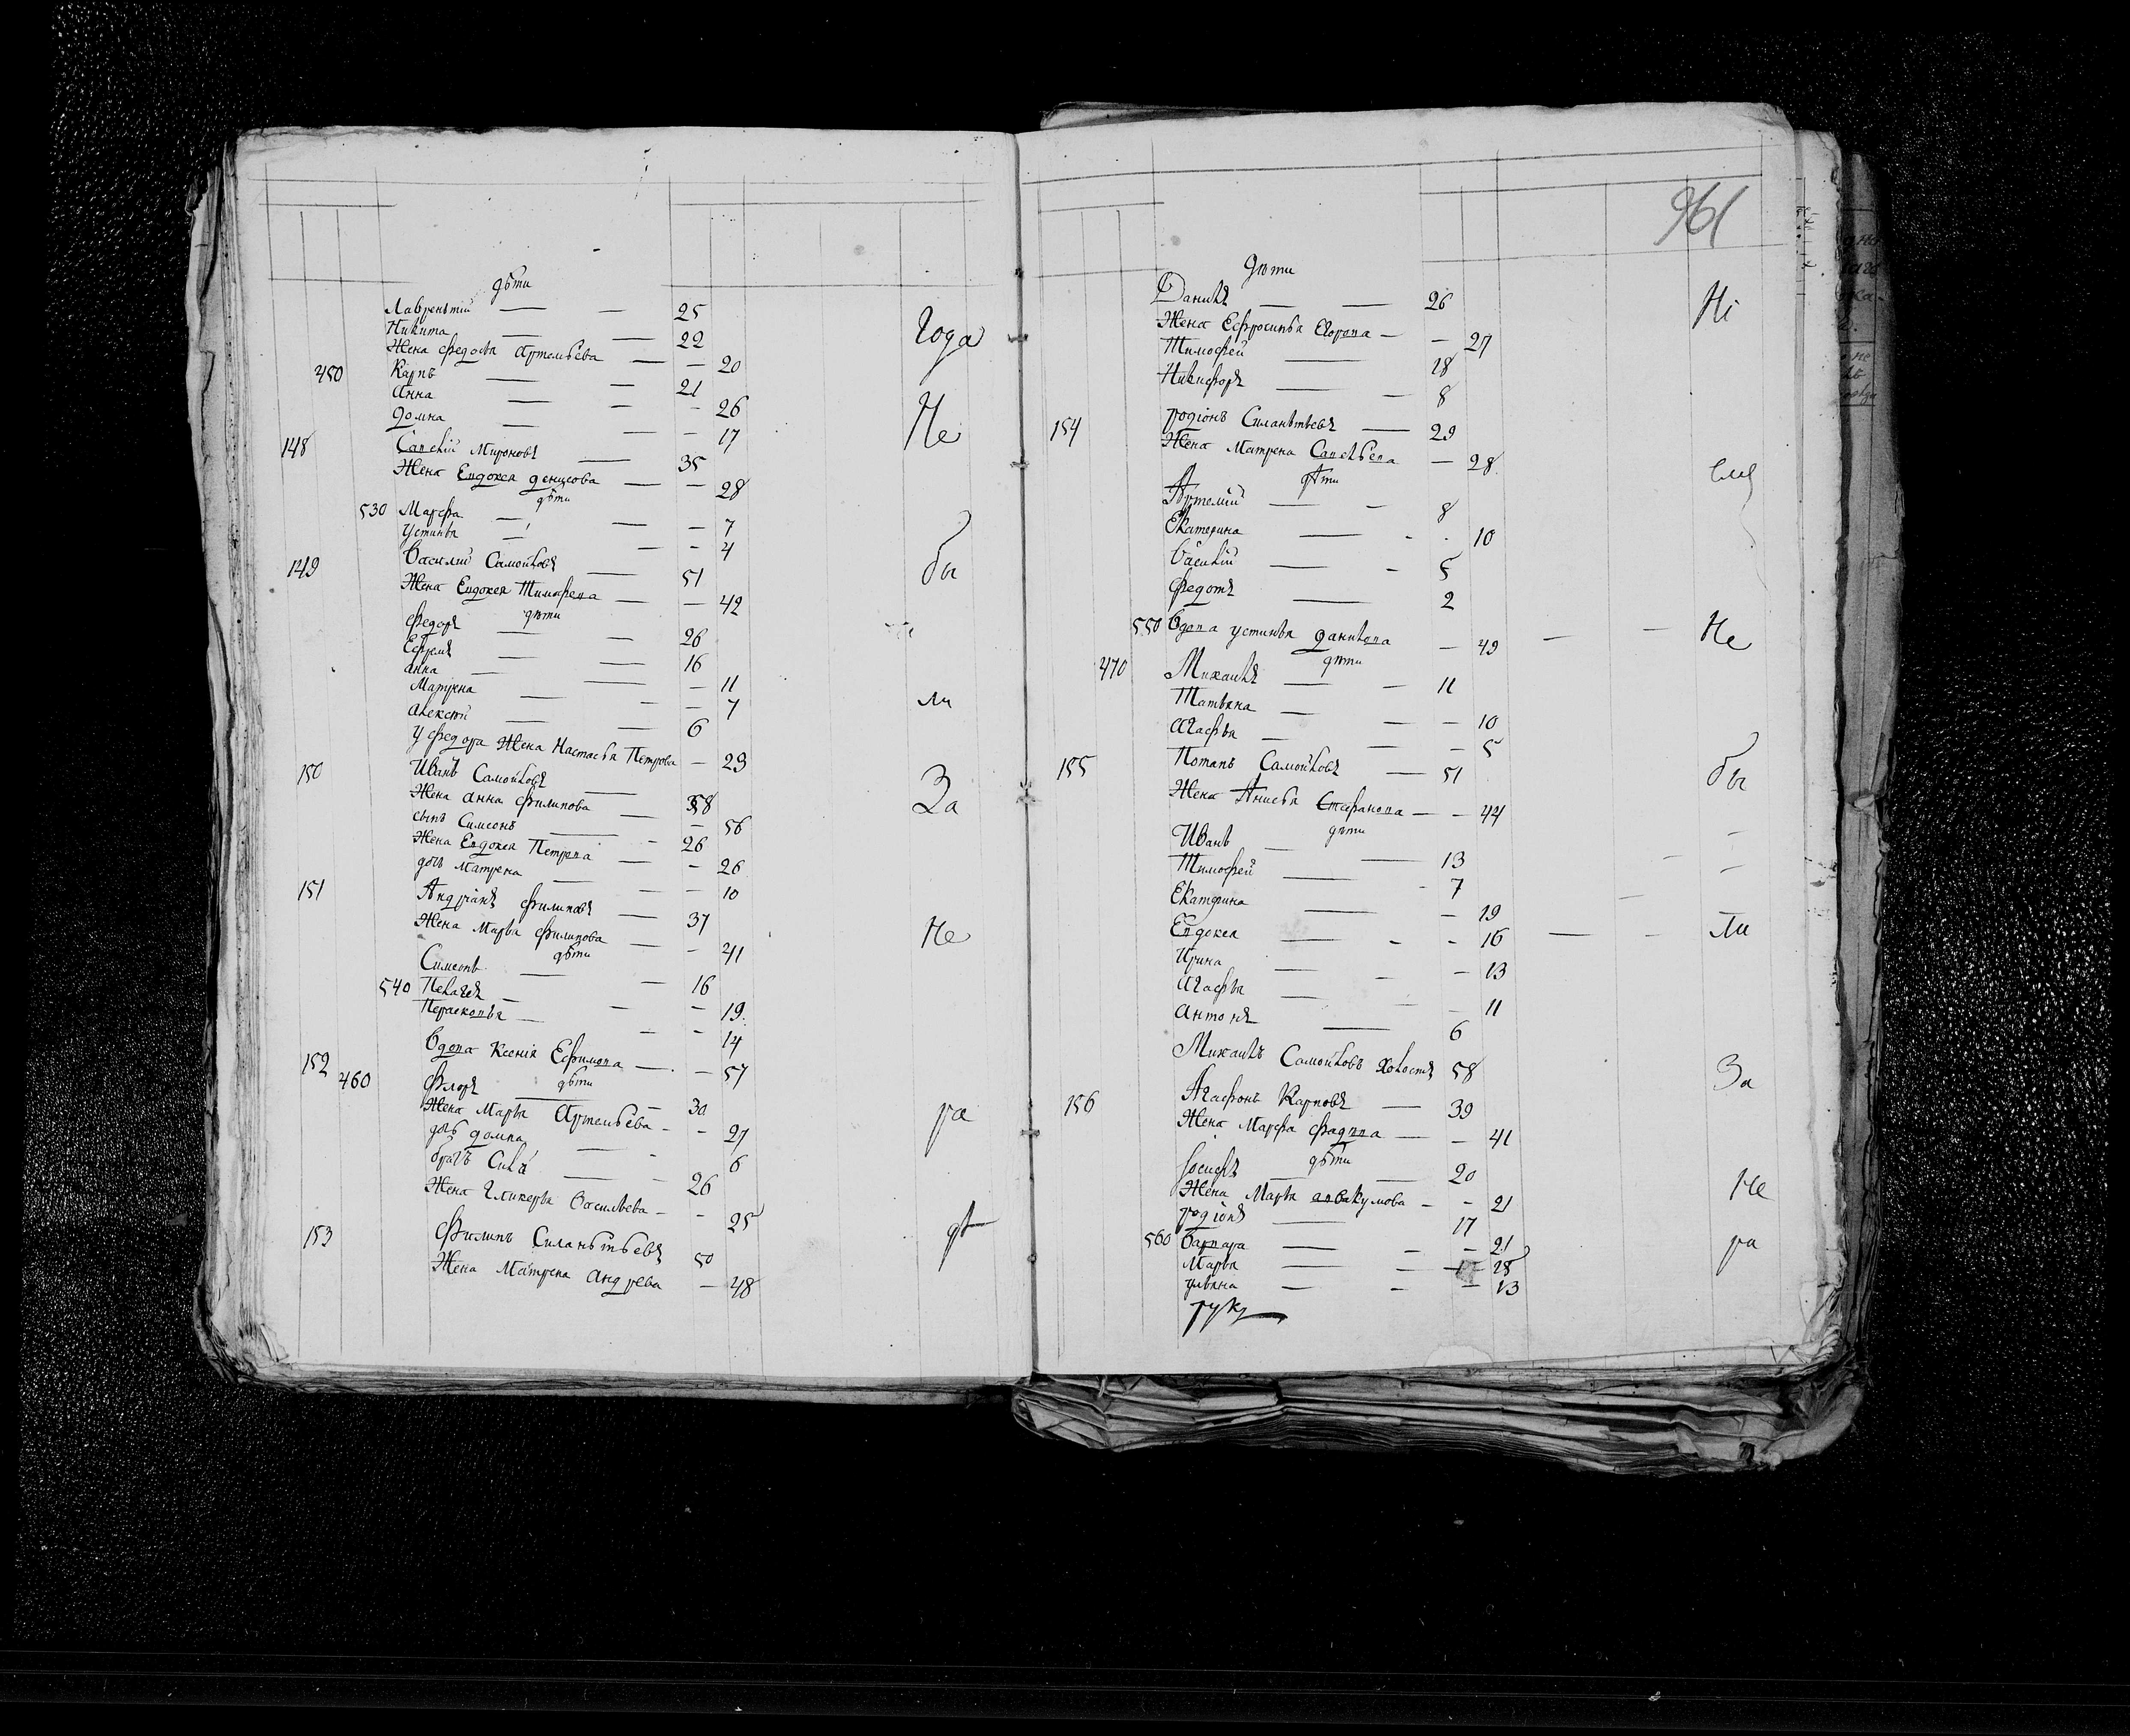 дѣти
Лаврентий — — 25
Никита — — 22
Жена Федосья Артемьева — — 20
450 Карпъ — — 21
Анна — — — 26
Домна — — — 17
148 Савелий Мироновъ — 35
Жена Евдокея Денисова — — 28
дѣти
530 Марфа — — — 7
Устинья — — — 4
149 Василий Самойловъ — 51
Жена Евдокея Тимофева — — 42
дѣти
Федоръ — — 26
Ефремъ — — 16
Анна — — — 11
Матрена — — — 7
Алексѣй — — 6
у Федора Жена Настасья Петрова — 23
150 Иванъ Самойловъ — 58
Жена Анна Филипова — — 56
сынъ Симеонъ — - 26
Жена Евдокея Петрова — — 26
дочь Матрена — — — 10
151 Андріанъ Филиповъ — 37
Жена Марья Филипова — — 41
дѣти
Симеонъ — — 16
540 Пелагея — — — 19
Парасковья — — — 14
Вдова Ксения Ефимова — — 57
152 дѣти
460 Флоръ — — 30
Жена Марья Артемьева — — 27
дочь Домна — — 6
братъ Сила — — 26
Жена Гликерья Васильева — — 25
153 Филипъ Силантьевъ 50
Жена Матрена Андрева — 48
Года
Не
бы
ли
За
Не
ра
дѣ
961
Дѣти
Данила — — 26
Жена Ефросинья — — 27
Тимофей — 18
Никифоръ — — 8
154 Родіонъ Силантьевъ — 29
Жена Матрена Савельева — 28
дѣти
Артемий — — 8
Екатерина — - . 10
Василий — — 5
Федотъ — 2
550 Вдова Устинья Данилова — 49 — —
дѣти
470 Михаила — — 11
Татьяна — — — 10
Агафья — — — 5
155 Потапъ Самойловъ — 51
Жена Анисья Стефанова — — 44
дѣти
Иванъ — — 13
Тимофей — - 7
Екатерина — — 19
Евдокея — - - 16 — —
Ирина — — — 13
Агафья — — 11
Антонъ — 6
Михаилъ Самойловъ холостъ 58
156 Агафонъ Карповъ — 39
Жена Марфа — — 41
дѣти
Іосифъ — — 20
Жена Марья Авакумова — - 21
Родіонъ — 17
560 Варвара — — — 21
Марья — — — 18
Ульяна — — — 13
Не
бы
ли
За
Не
ра